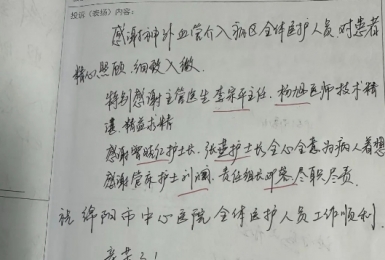 投诉（表扬）内容：
感谢神外血管介入病区全体医护人员对患者
精心照顾、细致入微。
特别感谢主管医生李宗平主任、杨旭医师技术精
湛、精益求精
感谢曾晓红护士长、张莲护士长全心全意为病人着想
感谢管床护士刘 责任组长邓 尽职尽责。
祝绵阳市中心医院全体医护人员工作顺利